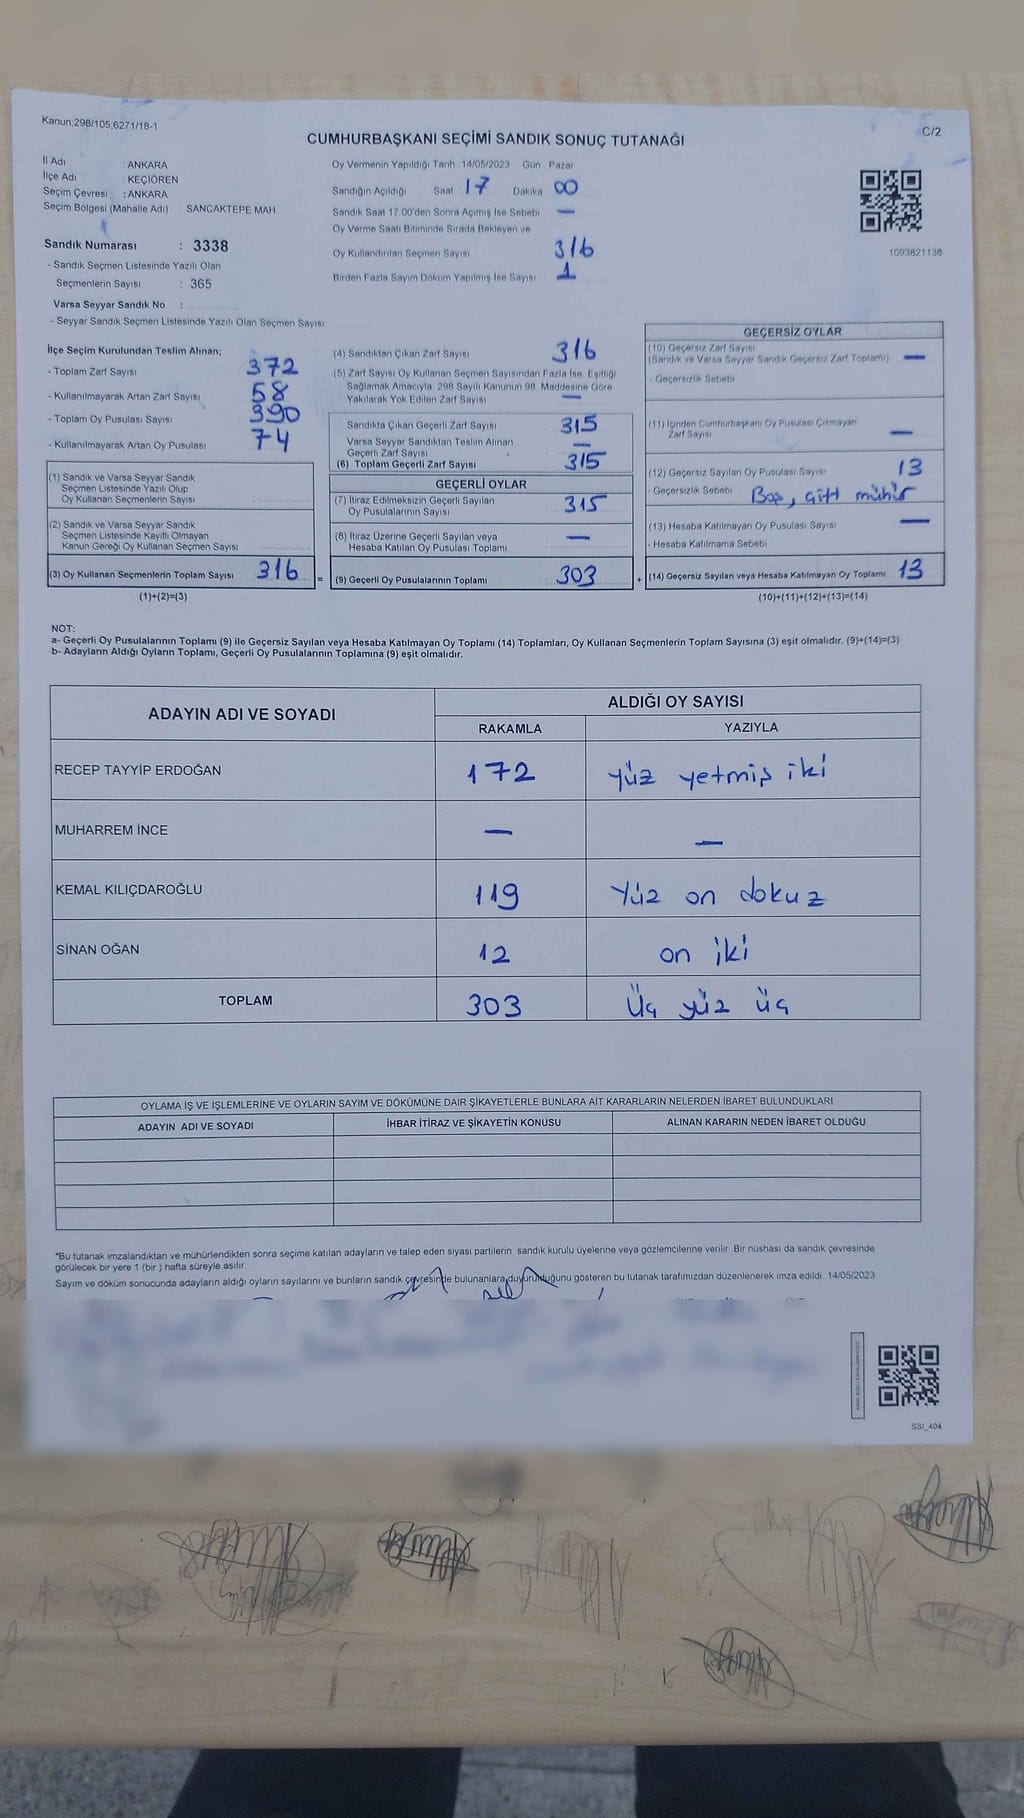 Kanun;298/105,6271/18-1
C/2
CUMHURBAŞKANI SEÇİMİ SANDIK SONUÇ TUTANAĞI
İl Adı : ANKARA
İlçe Adı : KEÇİÖREN
Seçim Çevresi : ANKARA
Seçim Bölgesi (Mahalle Adı) SANCAKTEPE MAH
Sandık Numarası : 3338
- Sandık Seçmen Listesinde Yazılı Olan
Seçmenlerin Sayısı : 365
Varsa Seyyar Sandık No :
- Seyyar Sandık Seçmen Listesinde Yazılı Olan Seçmen Sayısı
Oy Vermenin Yapıldığı Tarih 14/05/2023 Gün Pazar
Sandığın Açıldığı Saat 17 Dakika 00
Sandık Saat 17.00'den Sonra Açımış İse Sebebi —
Oy Verme Saati Bitiminde Sırada Bekleyen ve
Oy Kullandırılan Seçmen Sayısı 316
Birden Fazla Sayım Döküm Yapılmış İse Sayısı 1
1093821138
İlçe Seçim Kurulundan Teslim Alınan;
- Toplam Zarf Sayısı 372
- Kullanılmayarak Artan Zarf Sayısı 58
- Toplam Oy Pusulası Sayısı 390
- Kullanılmayarak Artan Oy Pusulası 74
(1) Sandık ve Varsa Seyyar Sandık
Seçmen Listesinde Yazılı Olup
Oy Kullanan Seçmenlerin Sayısı
(2) Sandık ve Varsa Seyyar Sandık
Seçmen Listesinde Kayıtlı Olmayan
Kanun Gereği Oy Kullanan Seçmen Sayısı
(3) Oy Kullanan Seçmenlerin Toplam Sayısı 316
(1)+(2)=(3)
(4) Sandıktan Çıkan Zarf Sayısı 316
(5) Zarf Sayısı Oy Kullanan Seçmen Sayısından Fazla İse, Eşitliği
Sağlamak Amacıyla, 298 Sayılı Kanunun 98. Maddesine Göre
Yakılarak Yok Edilen Zarf Sayısı —
Sandıkta Çıkan Geçerli Zarf Sayısı 315
Varsa Seyyar Sandıktan Teslim Alınan
Geçerli Zarf Sayısı —
(6) Toplam Geçerli Zarf Sayısı 315
GEÇERLİ OYLAR
(7) İtiraz Edilmeksizin Geçerli Sayılan
Oy Pusulalarının Sayısı 315
(8) İtiraz Üzerine Geçerli Sayılan veya
Hesaba Katılan Oy Pusulası Toplamı —
= (9) Geçerli Oy Pusulalarının Toplamı 303 +
GEÇERSİZ OYLAR
(10) Geçersiz Zarf Sayısı
(Sandık ve Varsa Seyyar Sandık Geçersiz Zarf Toplamı) —
- Geçersizlik Sebebi
(11) İçinden Cumhurbaşkanı Oy Pusulası Çıkmayan
Zarf Sayısı —
(12) Geçersiz Sayılan Oy Pusulası Sayısı 13
- Geçersizlik Sebebi Boş, Çift mühür
(13) Hesaba Katılmayan Oy Pusulası Sayısı —
- Hesaba Katılmama Sebebi
(14) Geçersiz Sayılan veya Hesaba Katılmayan Oy Toplamı 13
(10)+(11)+(12)+(13)=(14)
NOT:
a- Geçerli Oy Pusulalarının Toplamı (9) ile Geçersiz Sayılan veya Hesaba Katılmayan Oy Toplamı (14) Toplamları, Oy Kullanan Seçmenlerin Toplam Sayısına (3) eşit olmalıdır. (9)+(14)=(3)
b- Adayların Aldığı Oyların Toplamı, Geçerli Oy Pusulalarının Toplamına (9) eşit olmalıdır.
ADAYIN ADI VE SOYADI
ALDIĞI OY SAYISI
RAKAMLA YAZIYLA
RECEP TAYYİP ERDOĞAN 172 Yüz yetmiş iki
MUHARREM İNCE — —
KEMAL KILIÇDAROĞLU 119 Yüz on dokuz
SİNAN OĞAN 12 on iki
TOPLAM 303 Üç yüz üç
OYLAMA İŞ VE İŞLEMLERİNE VE OYLARIN SAYIM VE DÖKÜMÜNE DAİR ŞİKAYETLERLE BUNLARA AİT KARARLARIN NELERDEN İBARET BULUNDUKLARI
ADAYIN ADI VE SOYADI İHBAR İTİRAZ VE ŞİKAYETİN KONUSU ALINAN KARARIN NEDEN İBARET OLDUĞU
*Bu tutanak imzalandıktan ve mühürlendikten sonra seçime katılan adayların ve talep eden siyasi partilerin sandık kurulu üyelerine veya gözlemcilerine verilir. Bir nüshası da sandık çevresinde
görülecek bir yere 1 (bir ) hafta süreyle asılır.
Sayım ve döküm sonucunda adayların aldığı oyların sayılarını ve bunların sandık çevresinde bulunanlara duyurulduğunu gösteren bu tutanak tarafımızdan düzenlenerek imza edildi. 14/05/2023
SSI_404